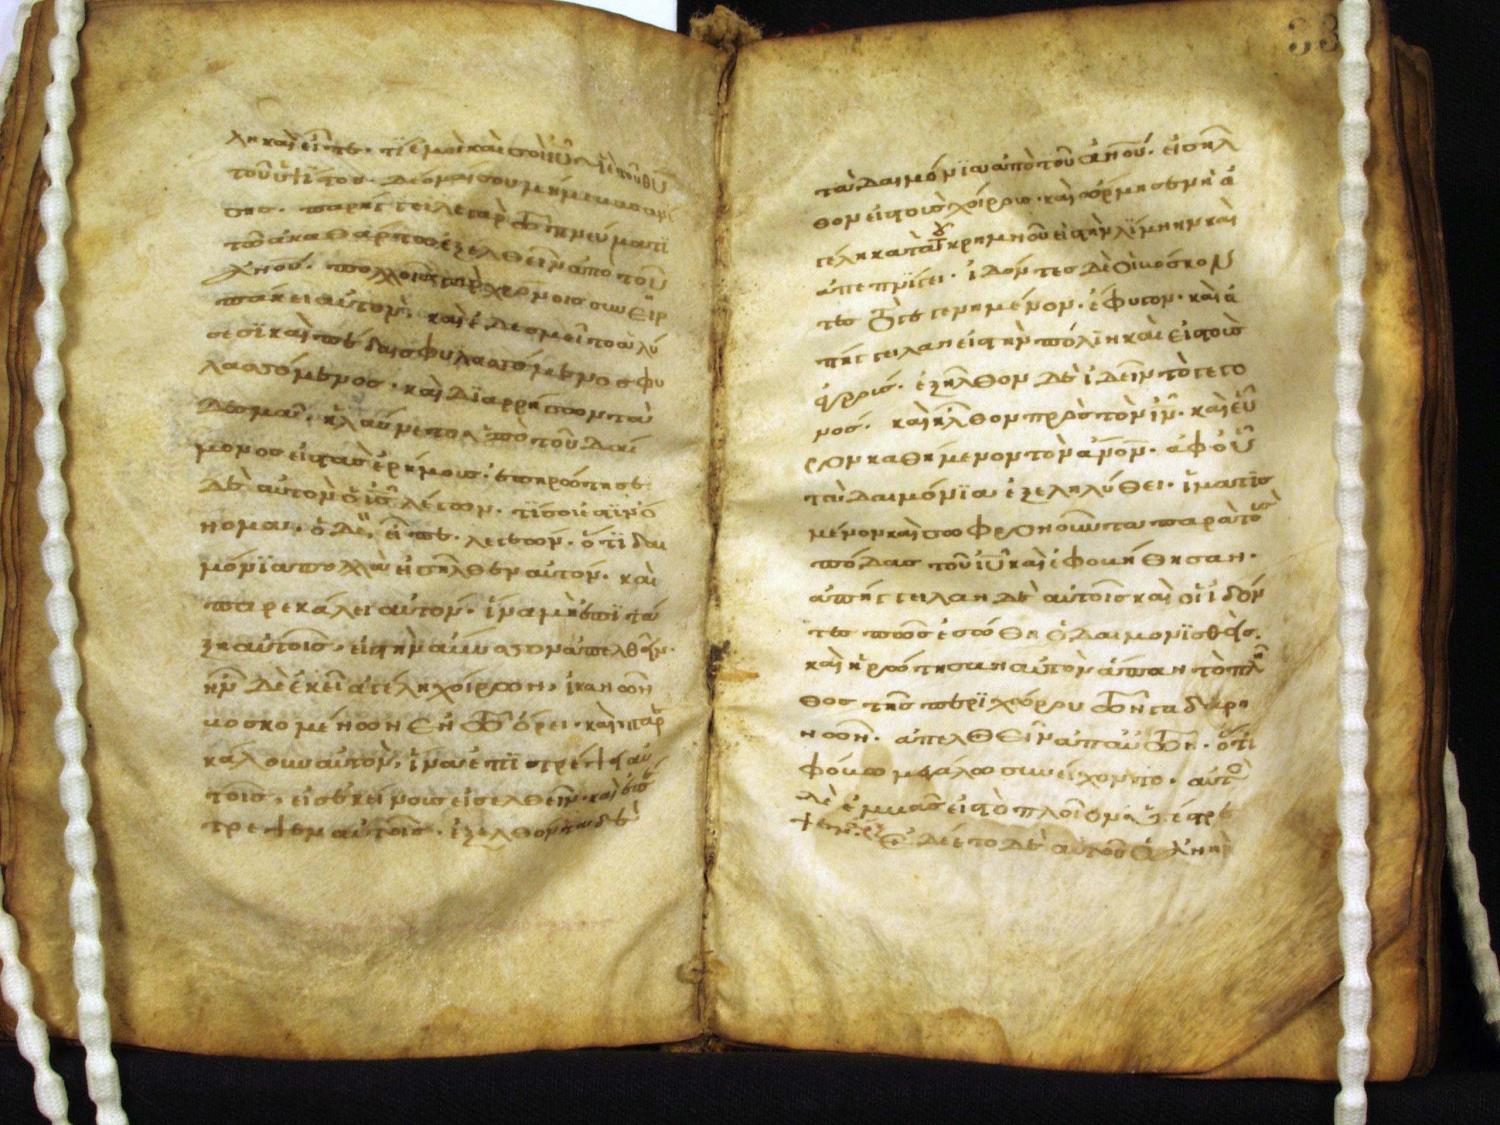 λη και είπε· τί εμοὶ καὶ σοὶ ιῦ υἱὲ τοῦ θῦ
τοῦ ὑψίστου· δέομαί σου μή με βασανί
σης· παρήγγειλε γὰρ τῶ πνεύματι
τῶ ἀκαθάρτω ἐξελθεῖν ἀπὸ τοῦ
ἀνου· πολλοῖς γὰρ χρόνοις συνειρ
πάκει αὐτόν, καὶ ἐδεσμεῖτο ἁλύ
σεσϊ καὶ πέδαις φυλασσόμενος φυ
λασσόμενος· καὶ διαρρήσσων τὰ
δεσμὰ, ἠλαύνετο ὑπὸ τοῦ δαί
μονος εἰς τὰς ἐρήμους· ἐπηρώτησε
δὲ αὐτὸν ὁ ις λέγων· τί σοι ἐστϊν ὄ
νομα· ὁ δὲ, εἶπε· λεγεών· ὅτϊ δαι
μόνϊα πολλὰ εἰσῆλθεν αὐτόν· καὶ
παρεκάλει αὐτόν· ἵνα μὴ ἐπϊτά
ξη αὐτοῖς, εἰς τὴν ἄβυσσον ἀπελθεῖν·
ην δὲ ἐκεῖ ἀγέλη χοίρων, ἱκανῶν
βοσκομένων ἐν τῶ ὄρει· καὶ παρ
κάλουν αὐτὸν, ἵνα ἐπϊτρέψη αὐ
τοῖς, εἰς ἐκείνους εἰσελθεῖν· καὶ ἐπέ
τρεψεν αὐτοῖς· ἐξελθόντα δὲ
33
τὰ δαιμόνϊα ἀπὸ τοῦ ἀνου· εἰσῆλ
θον εἰς τοὺς χοίρους· καὶ ὥρμησεν ἡ ἀ
γέλη κατὰ τοῦ κρημνοῦ εἰς τὴν λίμνην καὶ
ἀπεπνίγει· ἰδόντες δὲ οἱ βόσκον
τες τὸ γεγενημένον· ἔφυγον· καὶ ἀ
πήγγειλαν εἰς τὴν πόλϊν καὶ εἰς τοὺς
ἀγρούς· ἐξῆλθον δὲ ἰδεῖν τὸ γεγο
νός· καὶ ἦλθον πρὸς τὸν ιν· καὶ εὗ
ρον καθήμενον τὸν ἀνον· ἀφ' οὗ
τὰ δαιμόνϊα ἐξεληλύθει· ἱματϊσ
μένον καὶ σωφρονοῦντα παρὰ τοὺς
πόδας τοῦ ιυ καὶ ἐφοβήθησαν·
ἀπήγγειλαν δὲ αὐτοῖς καὶ οἱ ἰδόν
τες πῶς ἐσώθη ὁ δαιμονϊσθείς·
καὶ ἠρώτησαν αὐτὸν ἅπαν τὸ πλῆ
θος τῆς περϊχώρου τῶν γαδαρη
νῶν· ἀπελθεῖν ἀπ' αὐτῶν· ὅτϊ
φόβω μεγάλω συνείχοντο· αὐτὸς
δὲ ἐμβὰς εἰς τὸ πλοῖον ὑπέστρε
ψεν· ἐδέετο δὲ αὐτοῦ ὁ ἀνὴρ